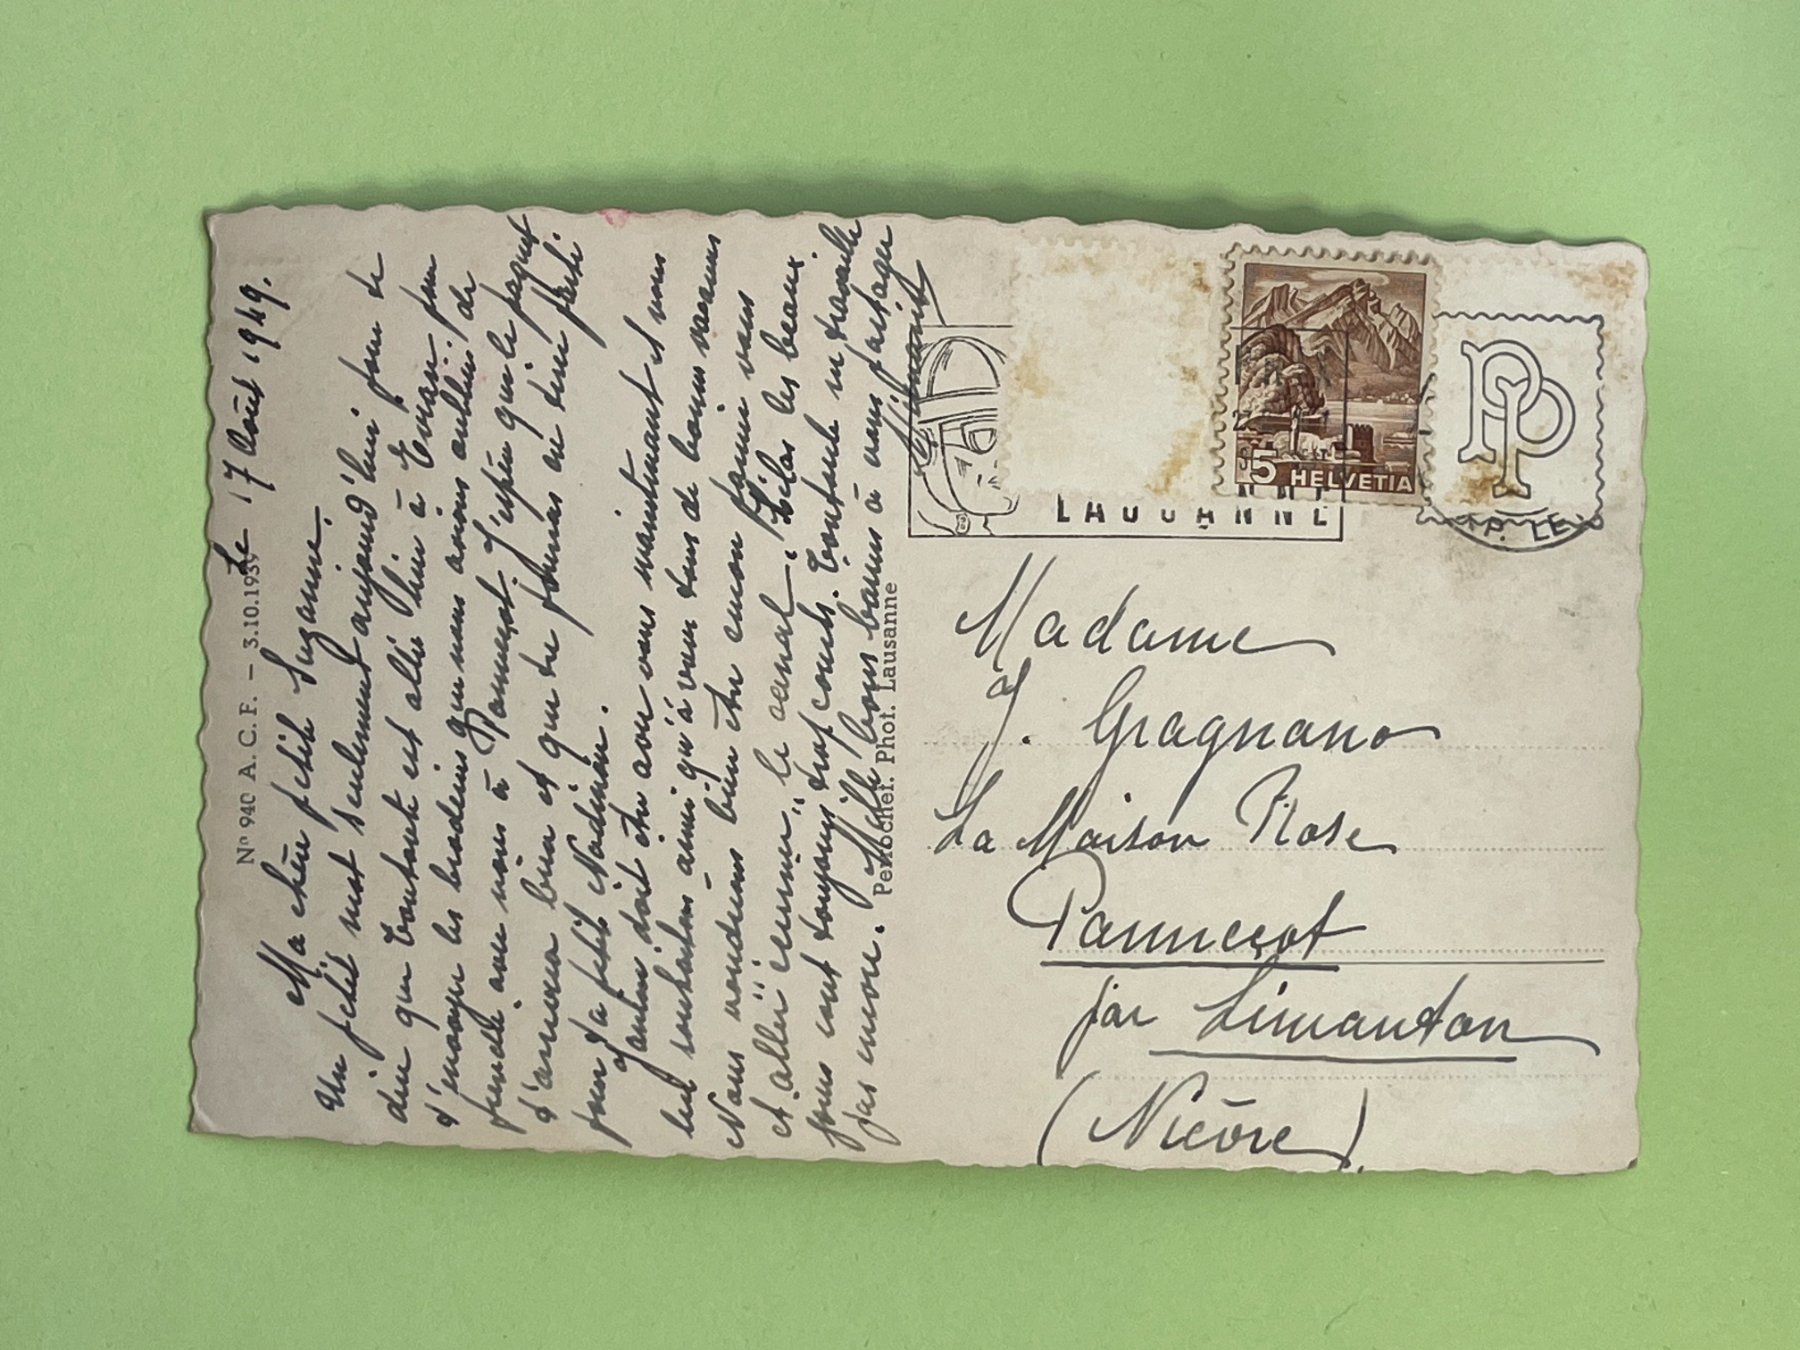 Nº 940 A. C. F. – 3.10.1939
Le 17 Août 1949.
Ma chère petite Suzanne.
Un petit mot seulement aujourd'hui pour te
dire que Tontante est allée hier à Evian pour
t'envoyer les broderies que nous avions oublié de
prendre avec nous à Pannecot. J'espère que le paquet
t'arrivera bien et que tu pourras en tirer parti
pour ta petite Nadinou.
Gaston doit être avec vous maintenant et nous
lui souhaitons ainsi qu'à vous tous de bonnes vacances
Nous voudrions bien être encore parmi vous
et aller "ensemble" le canal. Hélas les beaux
jours sont toujours trop courts. Tontante in travaille
pas encore. Mille bons baisers à vous partager
Perrochet. Phot. Lausanne
LAUSANNE
P.P. LE
PP
5
HELVETIA
Madame
J. Gragnano
La Maison Rose
Pannecot
par Limanton
(Nièvre)